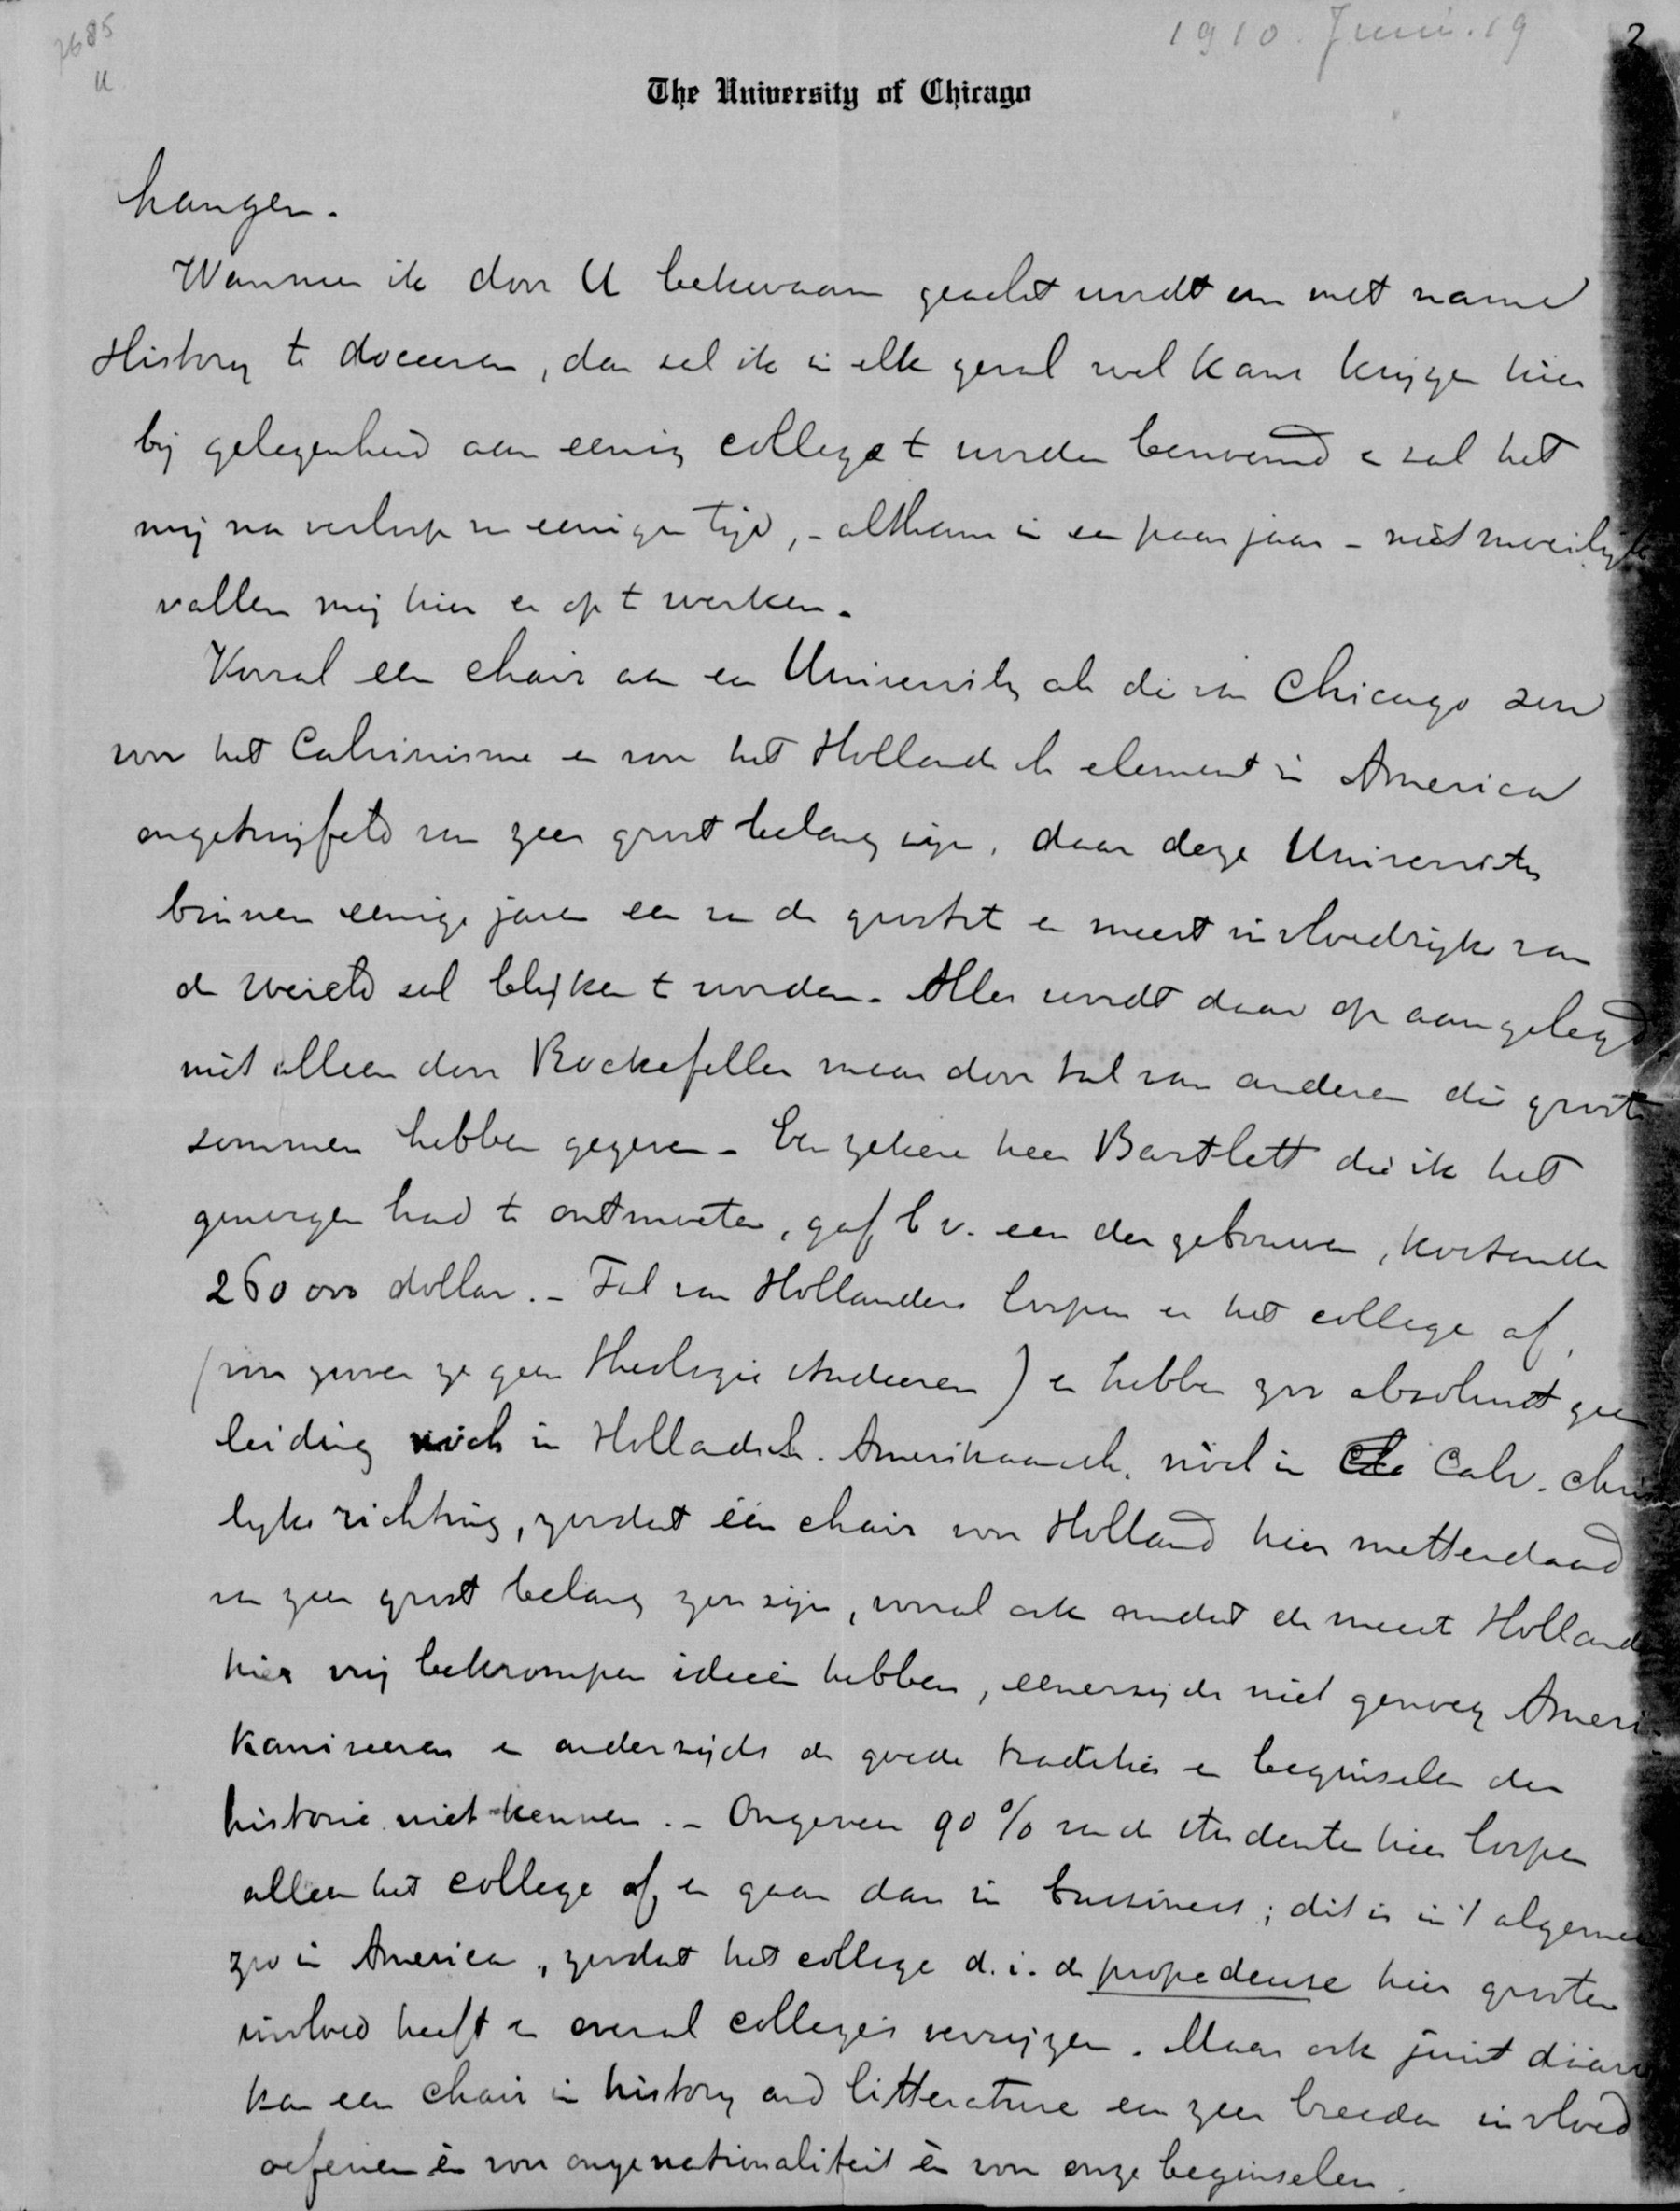 2685
u
1910. Juni. 19
2
The University of Chicago
hangen.
Wanneer ik door U bekwaam geacht wordt om met name
History te doceeren, dan zal ik in elk geval wel kans krijgen hier
bij gelegenheid aan eenig college te worden benoemd en zal het
mij na verloop van eenigen tijd, - althans in een paar jaar - niet moeilijk
vallen mij hier er op te werken.
Vooral een chair aan een University als die van Chicago zou
voor het Calvinisme en voor het Hollandsch element in America
ongetwijfeld van zeer groot belang zijn, daar deze University
binnen eenige jaren een van de grootste en meest invloedrijke van
de wereld zal blijken te worden. Alles wordt daar op aangelegd
niet alleen door Rockefeller maar door tal van anderen die groote
sommen hebben gegeven. Een zekere heer Bartlett die ik het
genoegen had te ontmoeten, gaf b v. een der gebouwen, kostende
260 000 dollar. - Tal van Hollanders loopen er het college af,
(voor zoover ze geen theologie studeeren) en hebben zoo absoluut geen
leiding noch in Hollandsch. Amerikaansch. noch in Calv. chris
lijke richting, zoodat één chair voor Holland hier metterdaad
van zeer groot belang zou zijn, vooral ook omdat de meeste Holland
hier vrij bekrompen ideeën hebben, eenerzijds niet genoeg Ameri
kaniseeren en anderzijds de goede tradities en beginselen der
historie niet kennen. - Ongeveer 90 % van de studenten hier loopen
alleen het college af, en gaan dan in bussiness; dit is in 't algemeen
zoo in America, zoodat het college d. i. de propedeuse hier grooten
invloed heeft en overal colleges verrijzen. Maar ook juist dáar
kan een chair in history and litterature een zeer breeden invloed
oefenen èn voor onze nationaliteit èn voor onze beginselen.